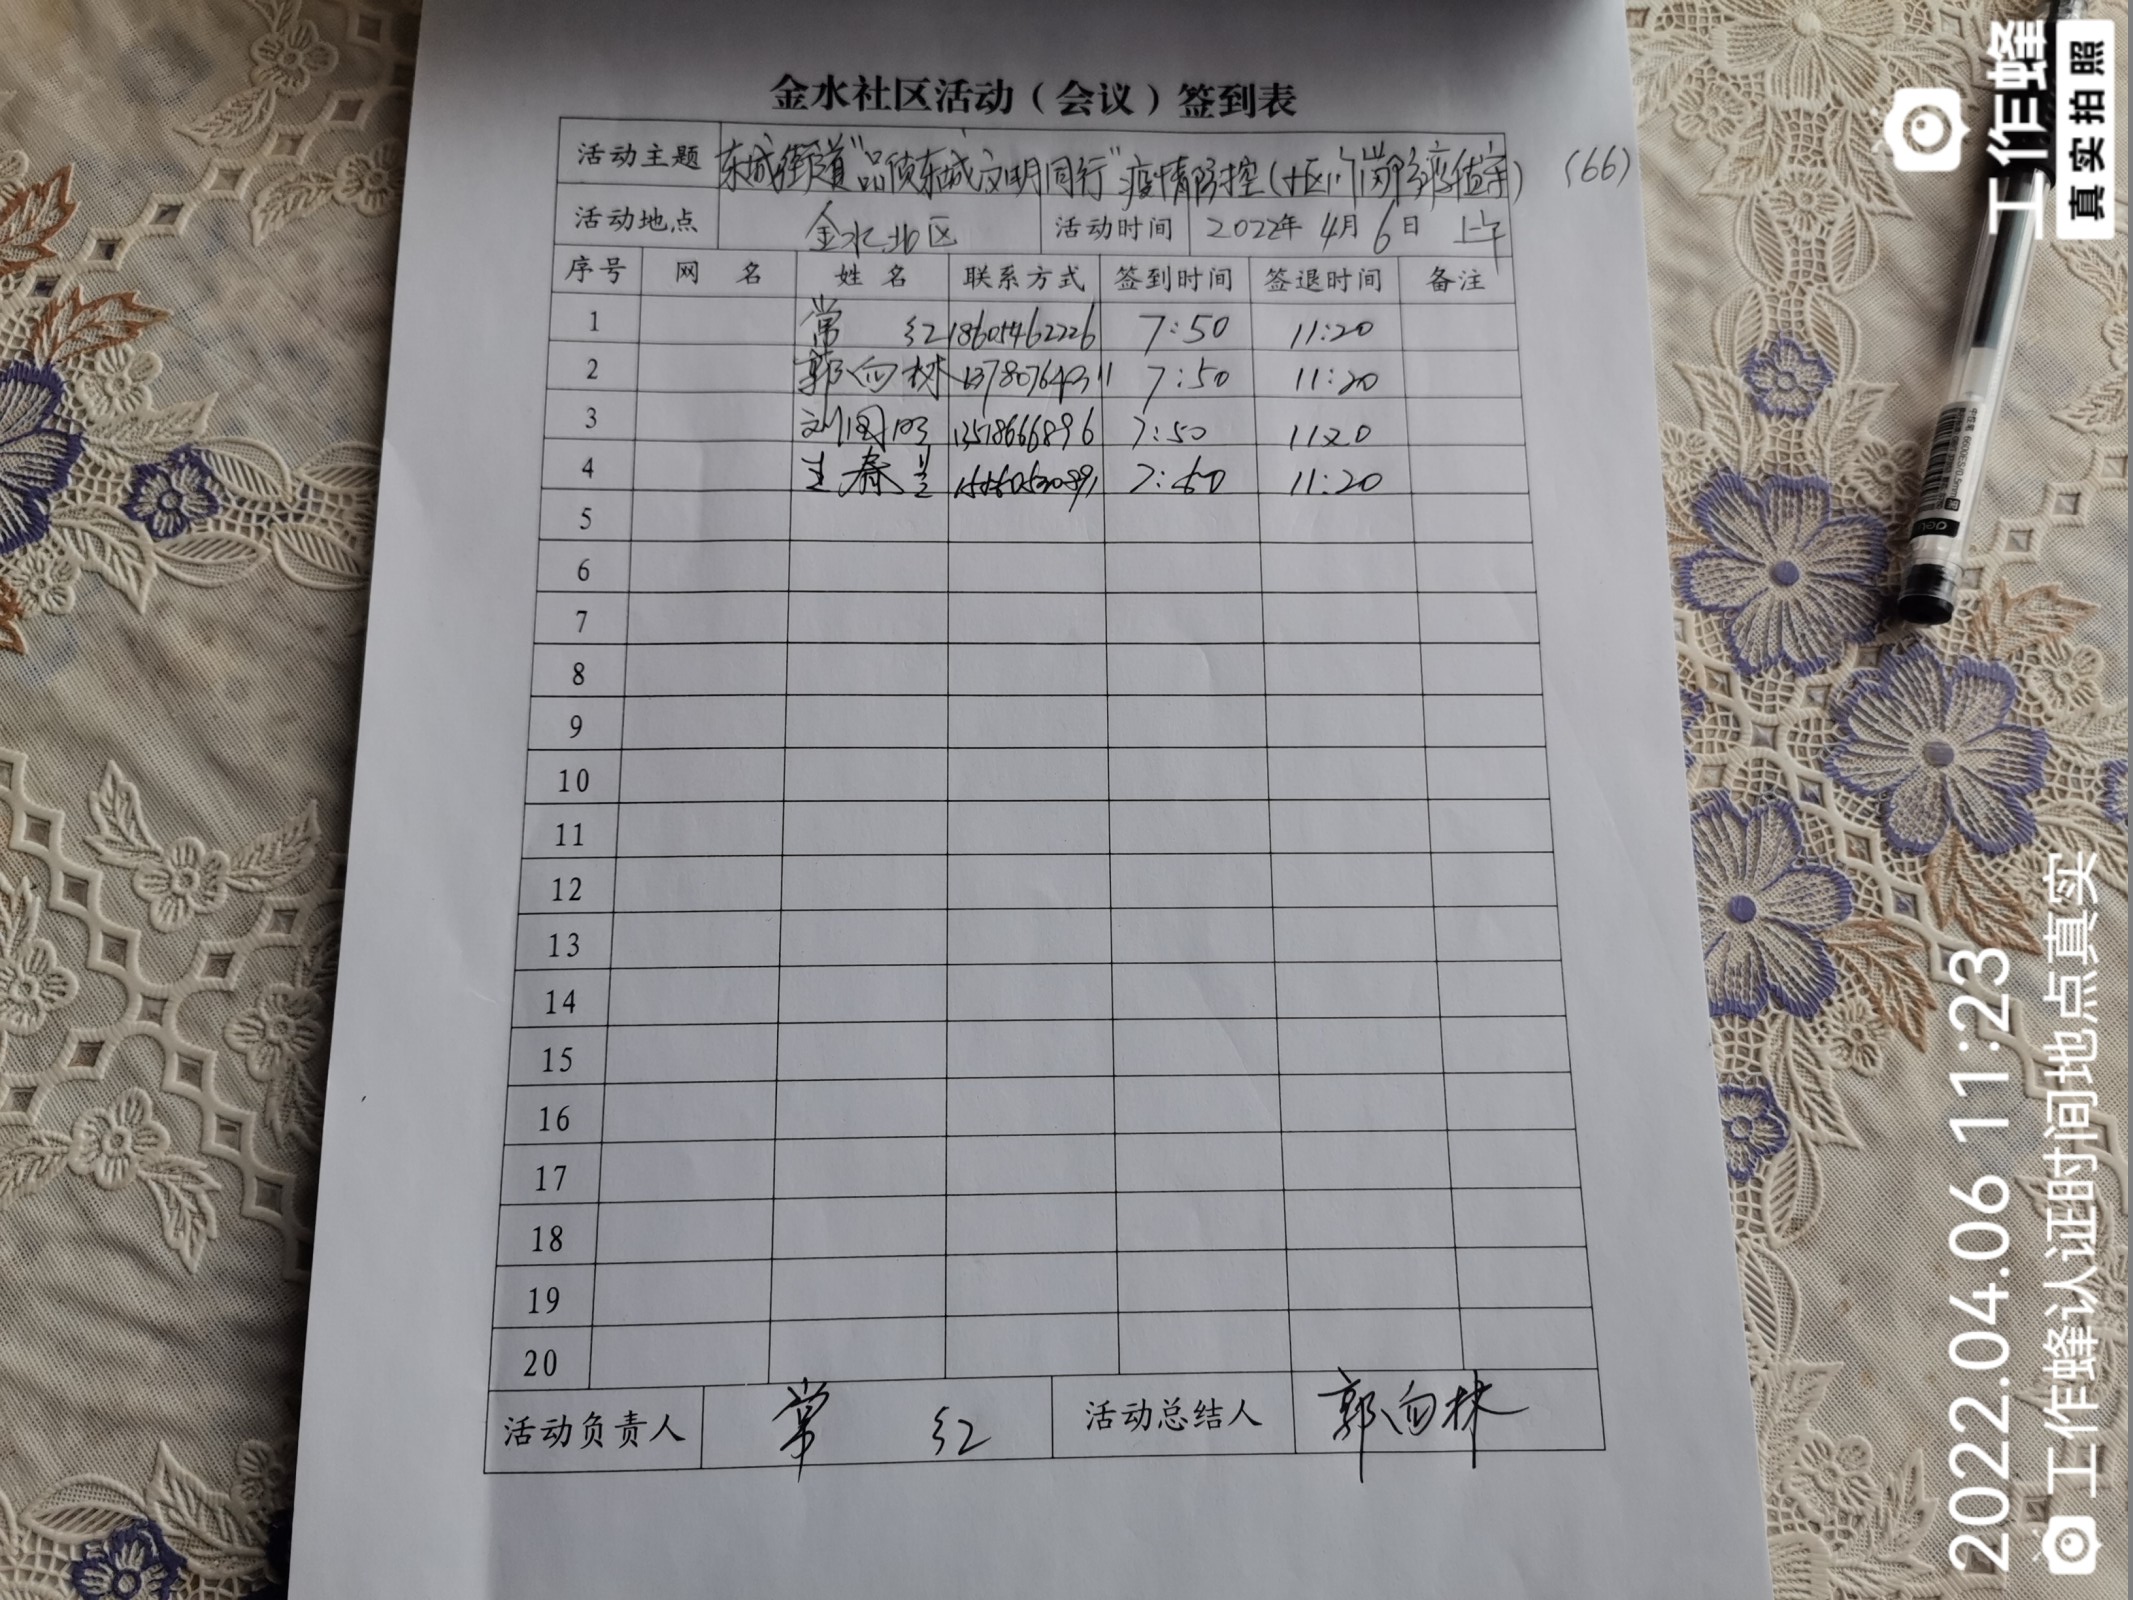 金水社区活动（会议）签到表
活动主题 东城街道“品质东城 文明同行”疫情防控 (66)
活动地点 金水北区 活动时间 2022年 4月 6日 上午
序号 网 名 姓 名 联系方式 签到时间 签退时间 备注
1 常 红 18605462226 7:50 11:20
2 郭向林 13780764311 7:50 11:20
3 7:50 11:20
4 王春兰 7:50 11:20
5
6
7
8
9
10
11
12
13
14
15
16
17
18
19
20
活动负责人 常 红 活动总结人 郭向林
工作蜂
真实拍照
2022.04.06 11:23
工作蜂认证时间地点真实